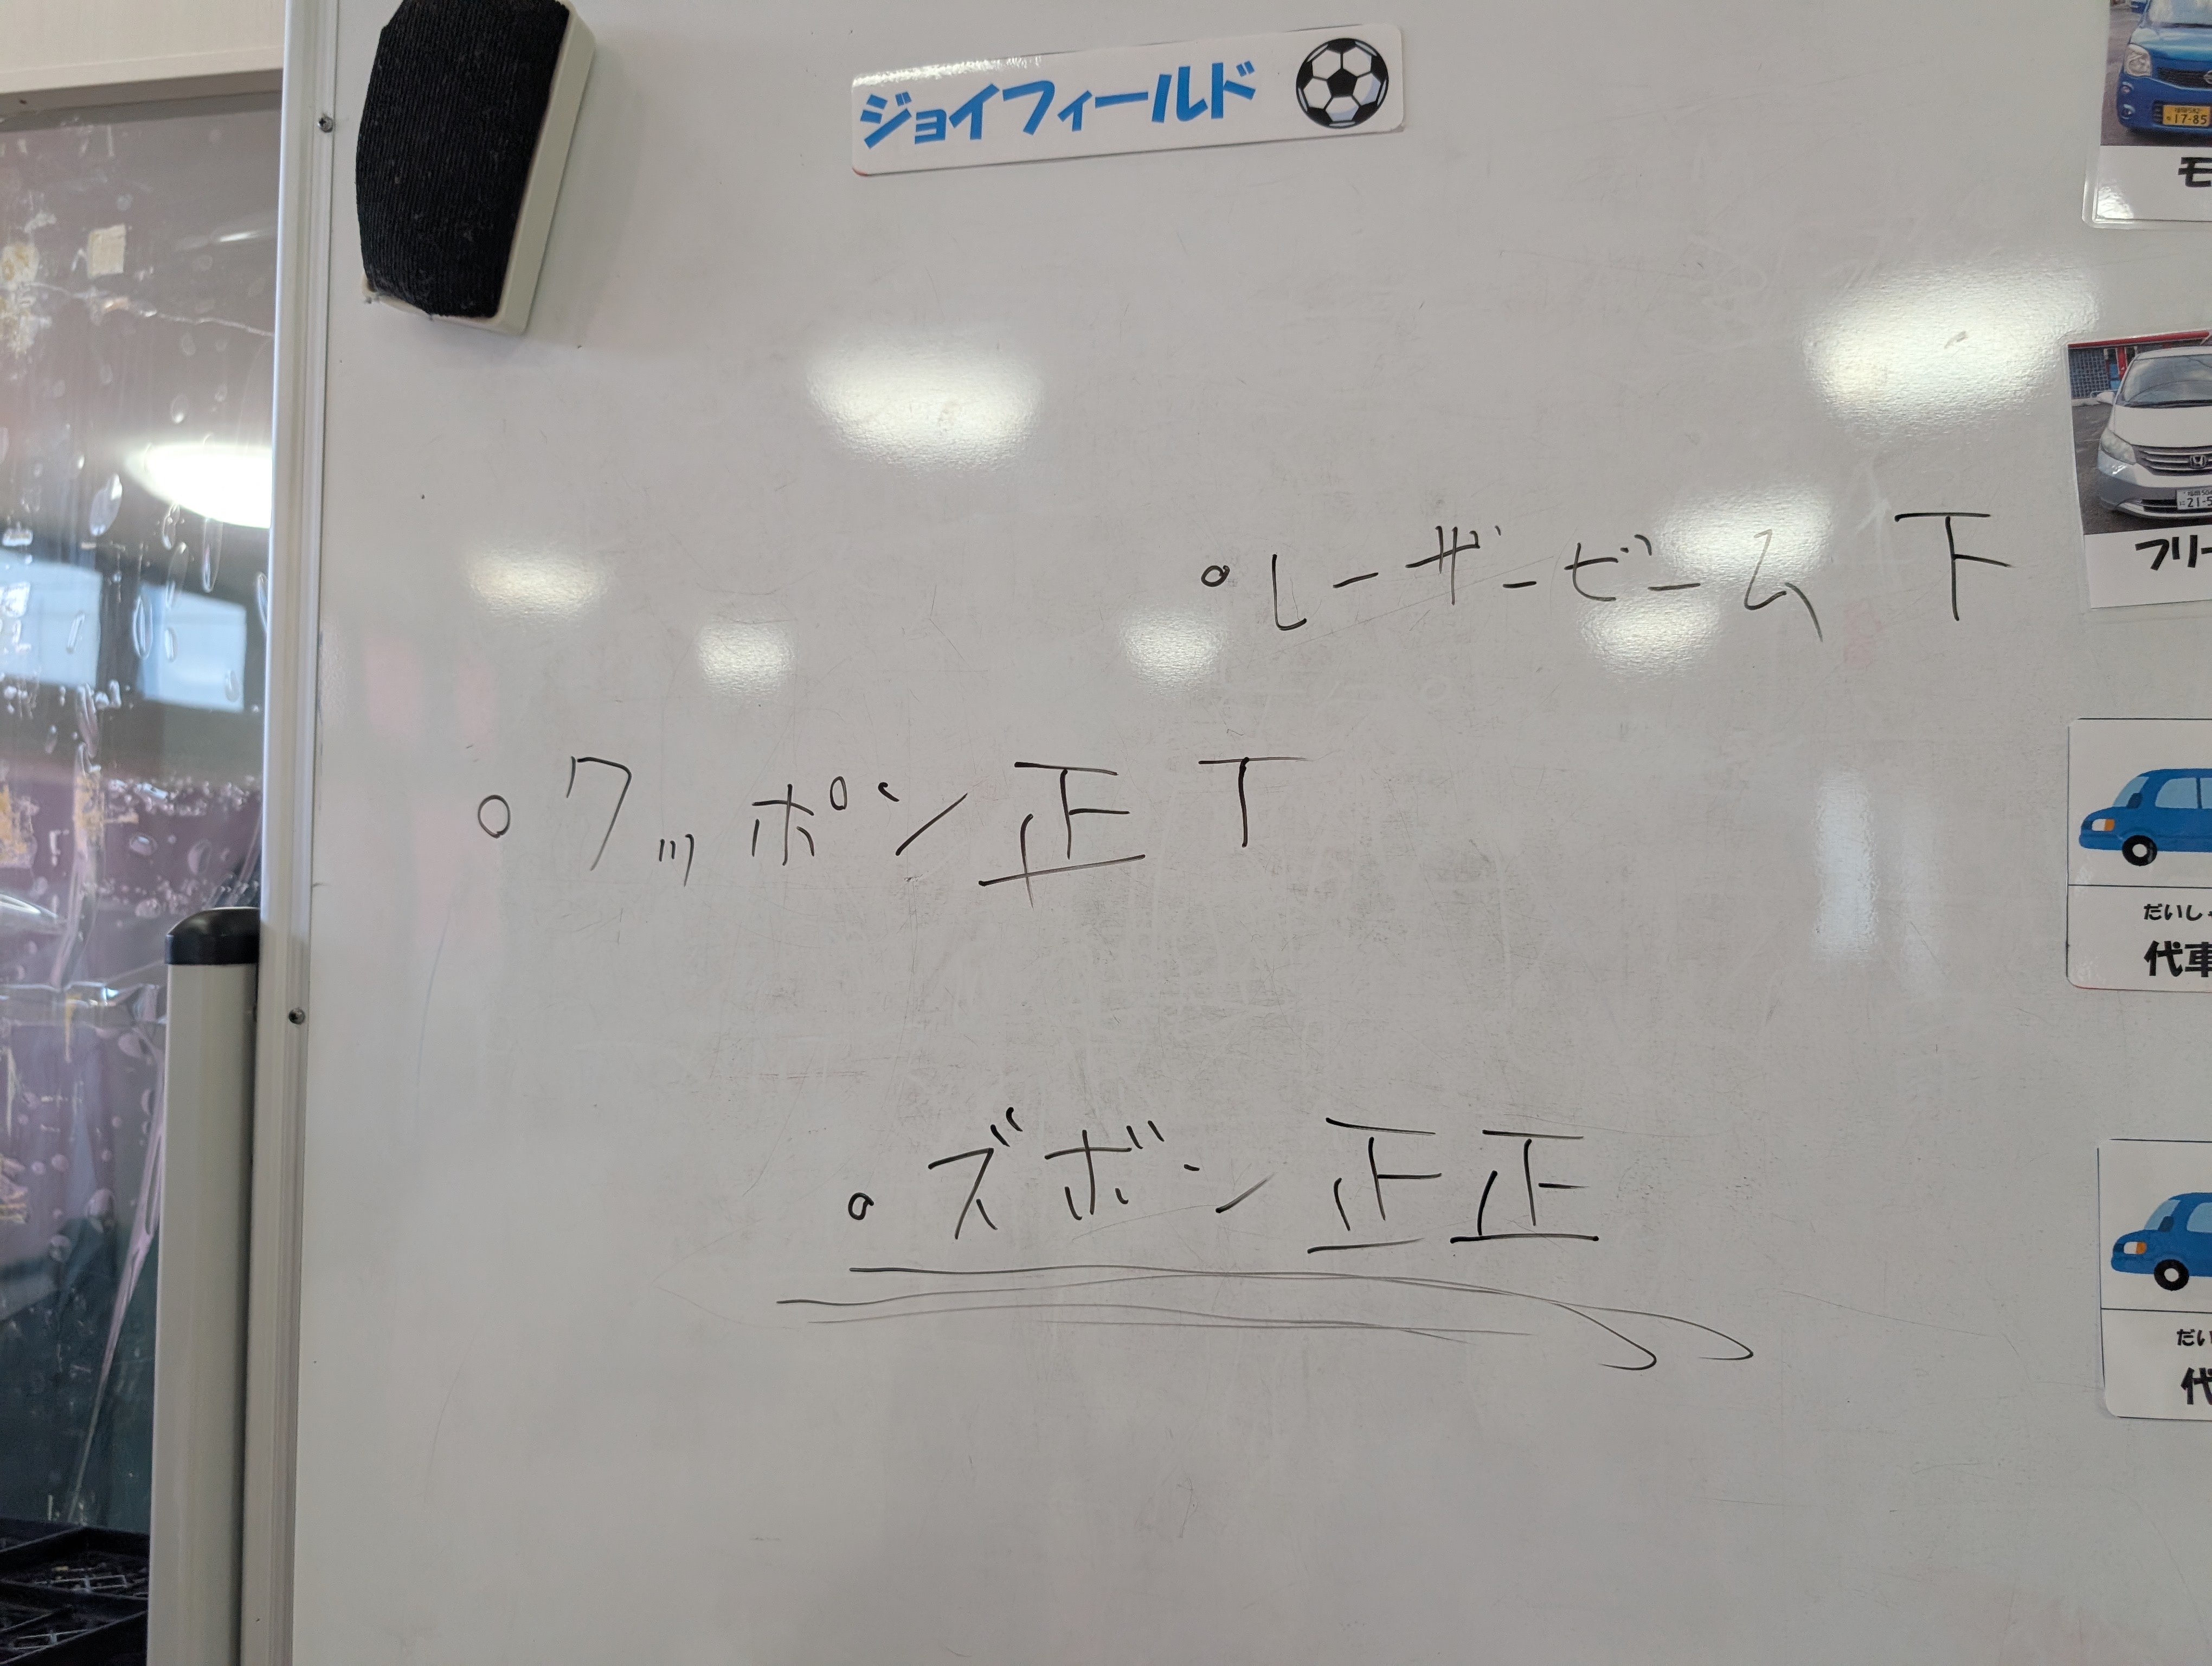 ジョイフィールド
17-85
モ
。レーザービーム 下
21-5
フリー
。ワッポン 正 T
だいし
代車
。ズボン 正 正
だい
代